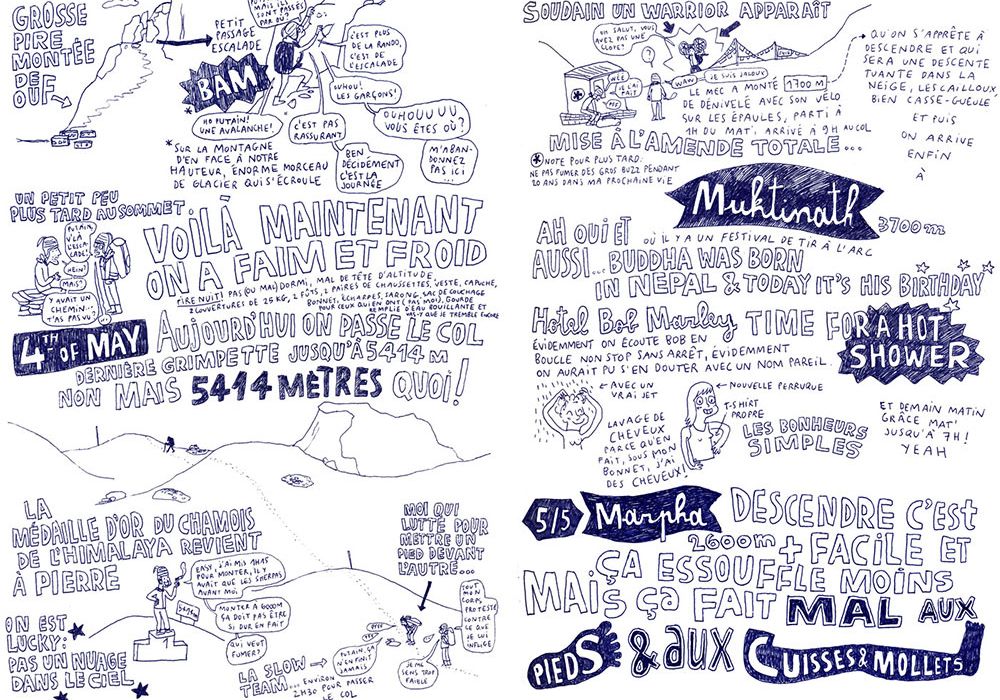 GROSSE
PIRE
MONTÉE
DE
OUF
PETIT
PASSAGE
ESCALADE
MAIS ILS
SONT PASSÉS
PAR OÙ?
C'EST PLUS
DE LA RANDO,
C'EST DE
L'ESCALADE
BAM
OUHOU!
LES GARÇONS!
* HO PUTAIN!
UNE AVALANCHE!
C'EST PAS
RASSURANT
OUHOUUUU
VOUS ÊTES OÙ?
* SUR LA MONTAGNE
D'EN FACE À NOTRE
HAUTEUR, ÉNORME MORCEAU
DE GLACIER QUI S'ÉCROULE
BEN
DÉCIDÉMENT
C'EST LA
JOURNÉE
M'ABAN-
DONNEZ
PAS ICI
...
UN PETIT PEU
PLUS TARD AU SOMMET
PUTAIN,
V'LÀ
L'ESCA-
LADE!
HEIN?
MAIS?
Y AVAIT UN
CHEMIN..
T'AS PAS VU?
VOILÀ MAINTENANT
ON A FAIM ET FROID
PIRE NUIT! PAS (OU MAL) DORMI, MAL DE TÊTE D'ALTITUDE,
2 COUVERTURES DE 25 KG, 2 FUTS, 2 PAIRES DE CHAUSSETTES, VESTE, CAPUCHE,
BONNET, ÉCHARPES, SARONG, SAC DE COUCHAGE
POUR CEUX QUI EN ONT (PAS MOI), GOURDE
REMPLIE D'EAU BOUILLANTE ET
VAS-Y QUE JE TREMBLE ENCORE
4TH OF MAY
AUJOURD'HUI ON PASSE LE COL
DERNIÈRE GRIMPETTE JUSQU'À 5414 M
NON MAIS 5414 MÈTRES QUOI!
LA
MÉDAILLE D'OR DU CHAMOIS
DE L'HIMALAYA REVIENT
À PIERRE
EASY, J'AI MIS 1H15
POUR MONTER, IL Y
AVAIT QUE LES SHERPAS
AVANT MOI
MONTER À 6000M
ÇA DOIT PAS ÊTRE
SI DUR EN FAIT
QUI VEUT
FUMER?
5414M
ON EST
LUCKY:
PAS UN NUAGE
DANS LE CIEL
MOI QUI
LUTTE POUR
METTRE UN
PIED DEVANT
L'AUTRE...
TOUT
MON
CORPS
PROTESTE
CONTRE
CE QUE
JE LUI
INFLIGE
PFFF
PFFF
PUTAIN, ÇA
N'EN FINIT
JAMAIS!
JE ME
SENS TROP
FAIBLE
LA SLOW
TEAM... ENVIRON
2H30 POUR PASSER
LE COL
SOUDAIN UN WARRIOR APPARAÎT
OH SALUT, VOUS
AVEZ PAS UNE
CLOPE?
?
WAW
JE SUIS JALOUX
LE MEC A MONTÉ 1700 M
DE DÉNIVELÉ AVEC SON VÉLO
SUR LES ÉPAULES, PARTI À
1H DU MAT', ARRIVÉ À 9H AU COL
MISE À L'AMENDE TOTALE...
QU'ON S'APPRÊTE À
DESCENDRE ET QUI
SERA UNE DESCENTE
TUANTE DANS LA
NEIGE, LES CAILLOUX,
BIEN CASSE-GUEULE
ET PUIS
ON ARRIVE
ENFIN
À
* NOTE POUR PLUS TARD:
NE PAS FUMER DES GROS BUZZ PENDANT
20 ANS DANS MA PROCHAINE VIE
Muktinath
3700m
AH OUI ET OÙ IL Y A UN FESTIVAL DE TIR À L'ARC
AUSSI... BUDDHA WAS BORN
IN NEPAL & TODAY IT'S HIS BIRTHDAY
Hotel Bob Marley TIME FOR A HOT
SHOWER
ÉVIDEMMENT ON ÉCOUTE BOB EN
BOUCLE NON STOP SANS ARRÊT, ÉVIDEMMENT
ON AURAIT PU S'EN DOUTER AVEC UN NOM PAREIL.
AVEC UN
VRAI JET
NOUVELLE PERRUQUE
T-SHIRT
PROPRE
LAVAGE DE
CHEVEUX
PARCE QU'EN
FAIT, SOUS MON
BONNET, J'AI
DES CHEVEUX!
LES BONHEURS
SIMPLES
ET DEMAIN MATIN
GRÂCE MAT'
JUSQU'À 7H!
YEAH
5/5 Marpha
2600m
DESCENDRE C'EST
+ FACILE ET
ÇA ESSOUFFLE MOINS
MAIS ÇA FAIT MAL AUX
PIEDS & AUX CUISSES & MOLLETS